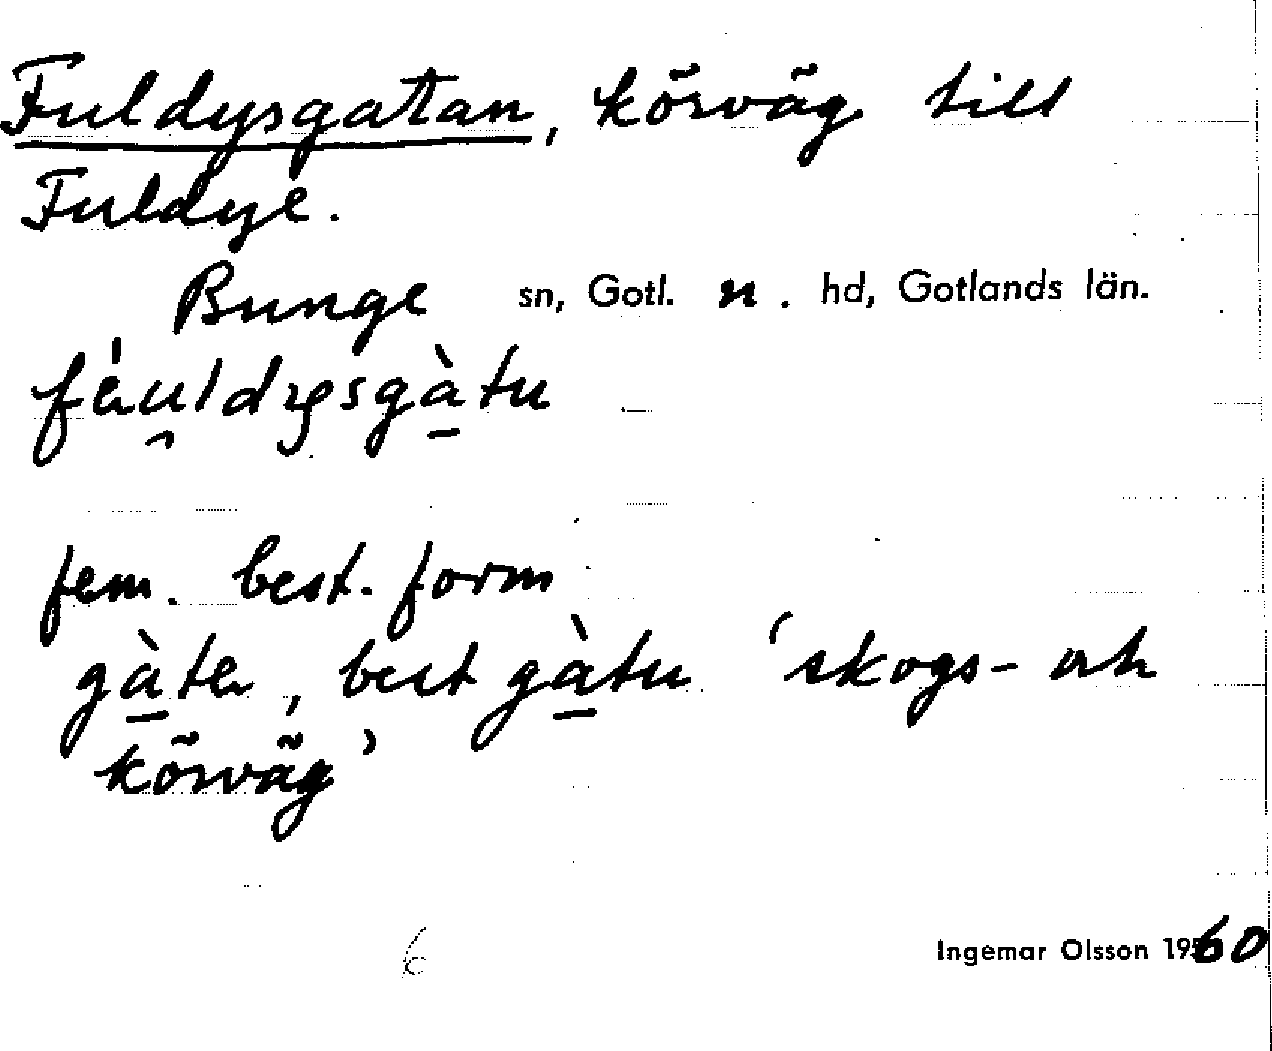 Fuldysgatan, körväg till
Fuldye.
Bunge sn, Gotl. n. hd, Gotlands län.
fem. best. form
best gàtu 'skogs- och
körväg'
6
Ingemar Olsson 1960